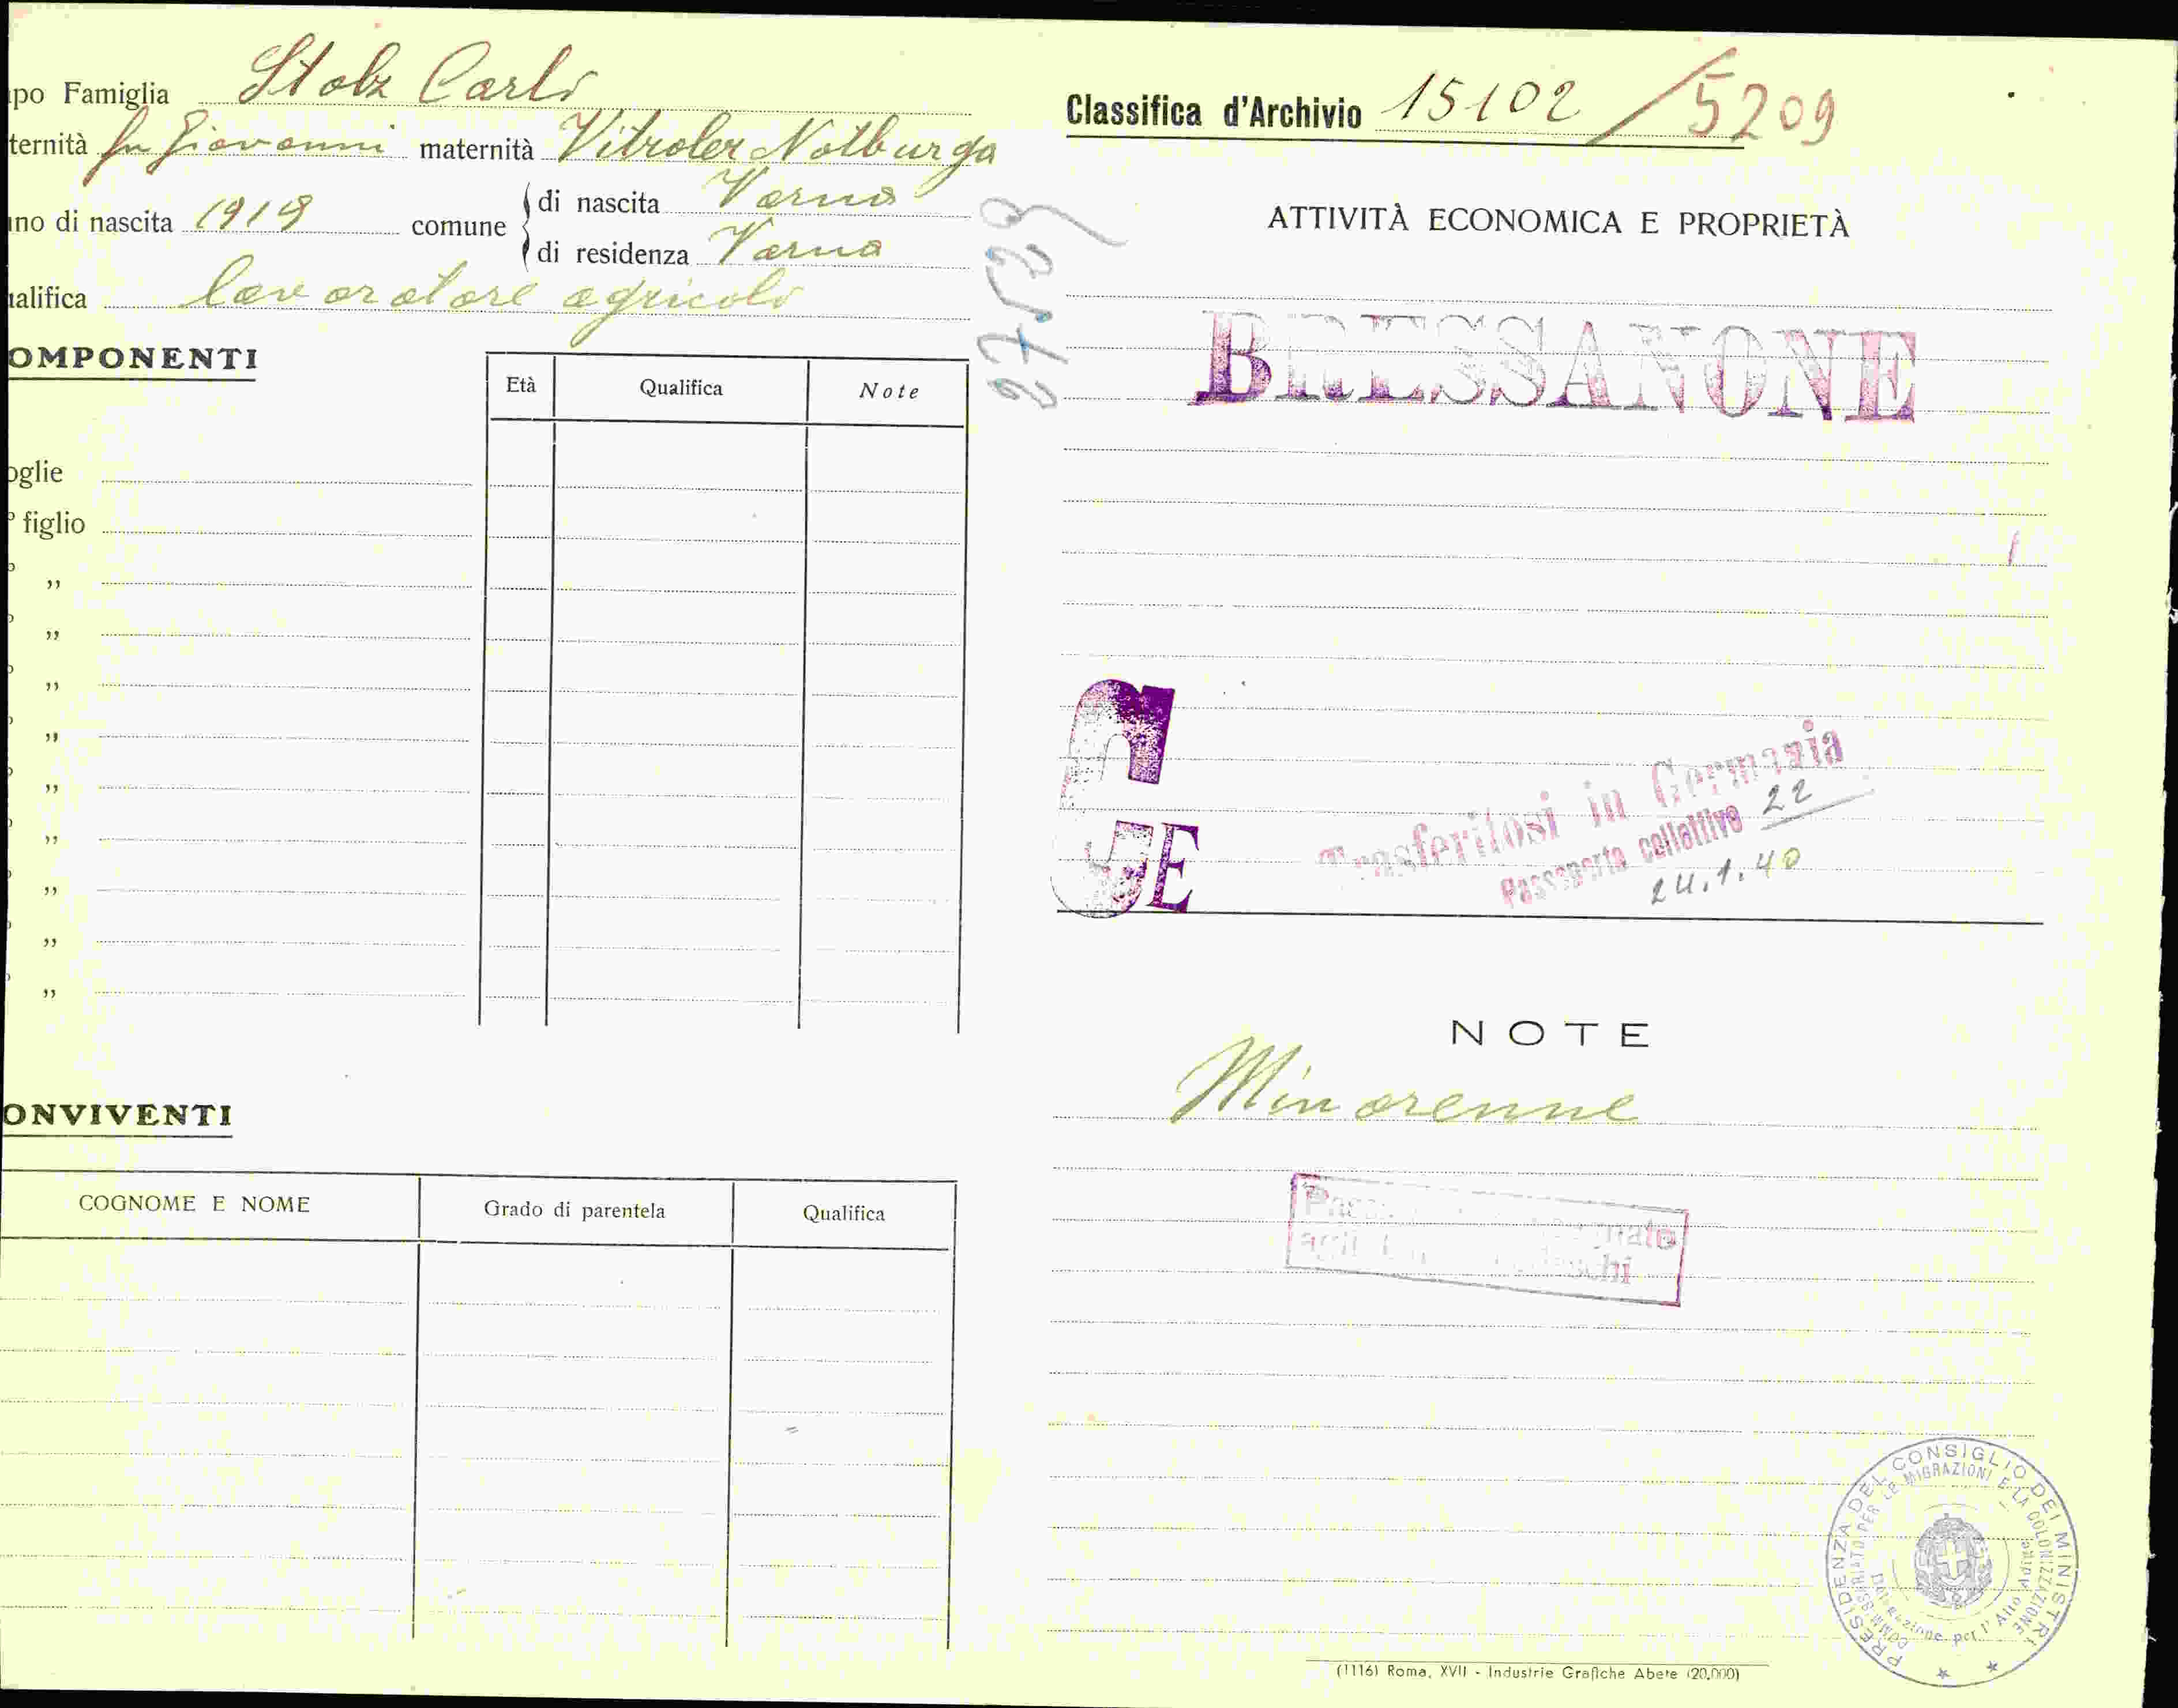 po Famiglia Stolz Carlo
ternità fu Giovanni maternità Vitroler Notburga
no di nascita 1919 comune di nascita Varna
di residenza Varna
alifica lavoratore agricolo
OMPONENTI
Età Qualifica Note
oglie
° figlio
° ,,
° ,,
° ,,
° ,,
° ,,
° ,,
° ,,
° ,,
° ,,
ONVIVENTI
COGNOME E NOME Grado di parentela Qualifica
Classifica d'Archivio 15102 /5209
ATTIVITÀ ECONOMICA E PROPRIETÀ
BRESSANONE
G
GE
Trasferitosi in Germania
Passaporto collettivo 22
24.1.40
NOTE
Minorenne
PRESIDENZA DEL CONSIGLIO DEI MINISTRI
COMMISSARIATO PER LE MIGRAZIONI E LA COLONIZZAZIONE
Delegazione per l'Alto Adige
(1116) Roma, XVII - Industrie Grafiche Abete (20.000)